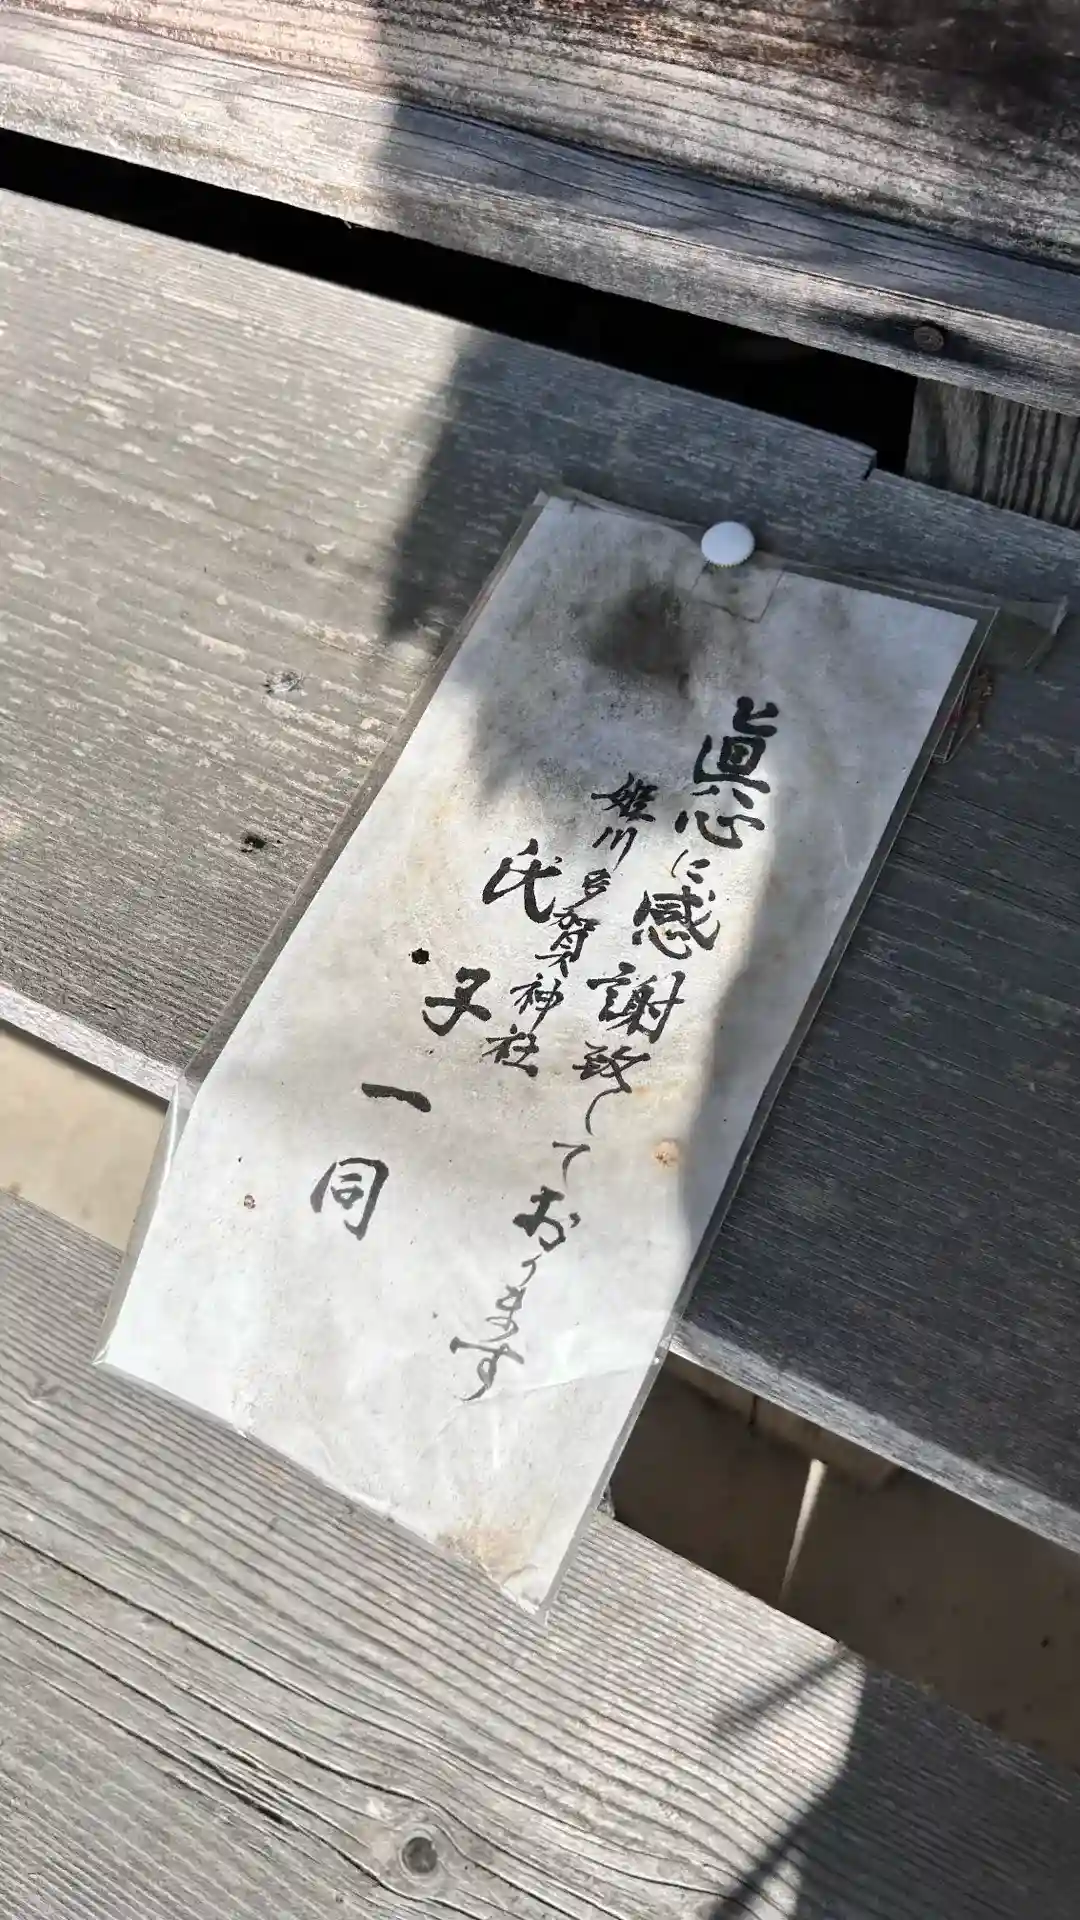 眞心に感謝致しております
姫川多賀神社
氏子一同